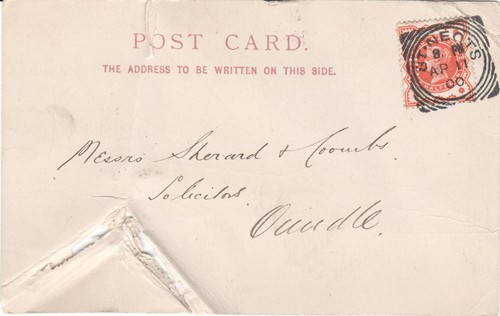 POST CARD.
THE ADDRESS TO BE WRITTEN ON THIS SIDE.
ST. NEOTS
AP 11
00
Messrs Sherard & Coombs
Solicitors
Oundle.